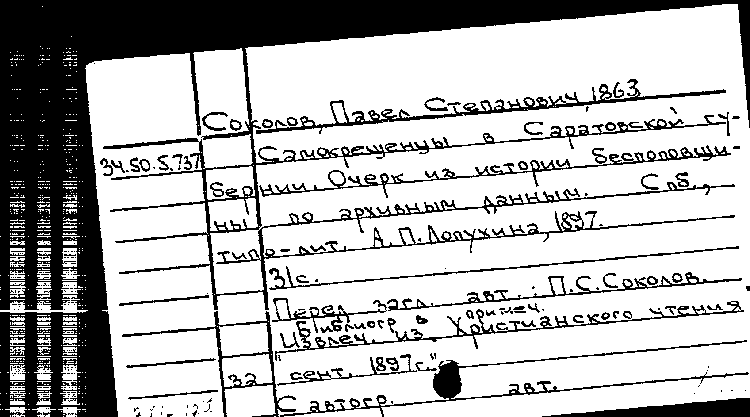 Соколов, Павел Степанович, 1863
34.50.5.737 Самокрещенцы в Саратовской гу-
бернии. Очерк из истории беспоповщи-
ны по архивным данным. Спб.,
типо-лит. А.П.Лопухина, 1897.
31с.
Перед загл. авт.: П.С.Соколов.
Библиогр в примеч.
"Извлеч. из. Христианского чтения
32 сент. 1897г."
С автогр. авт.